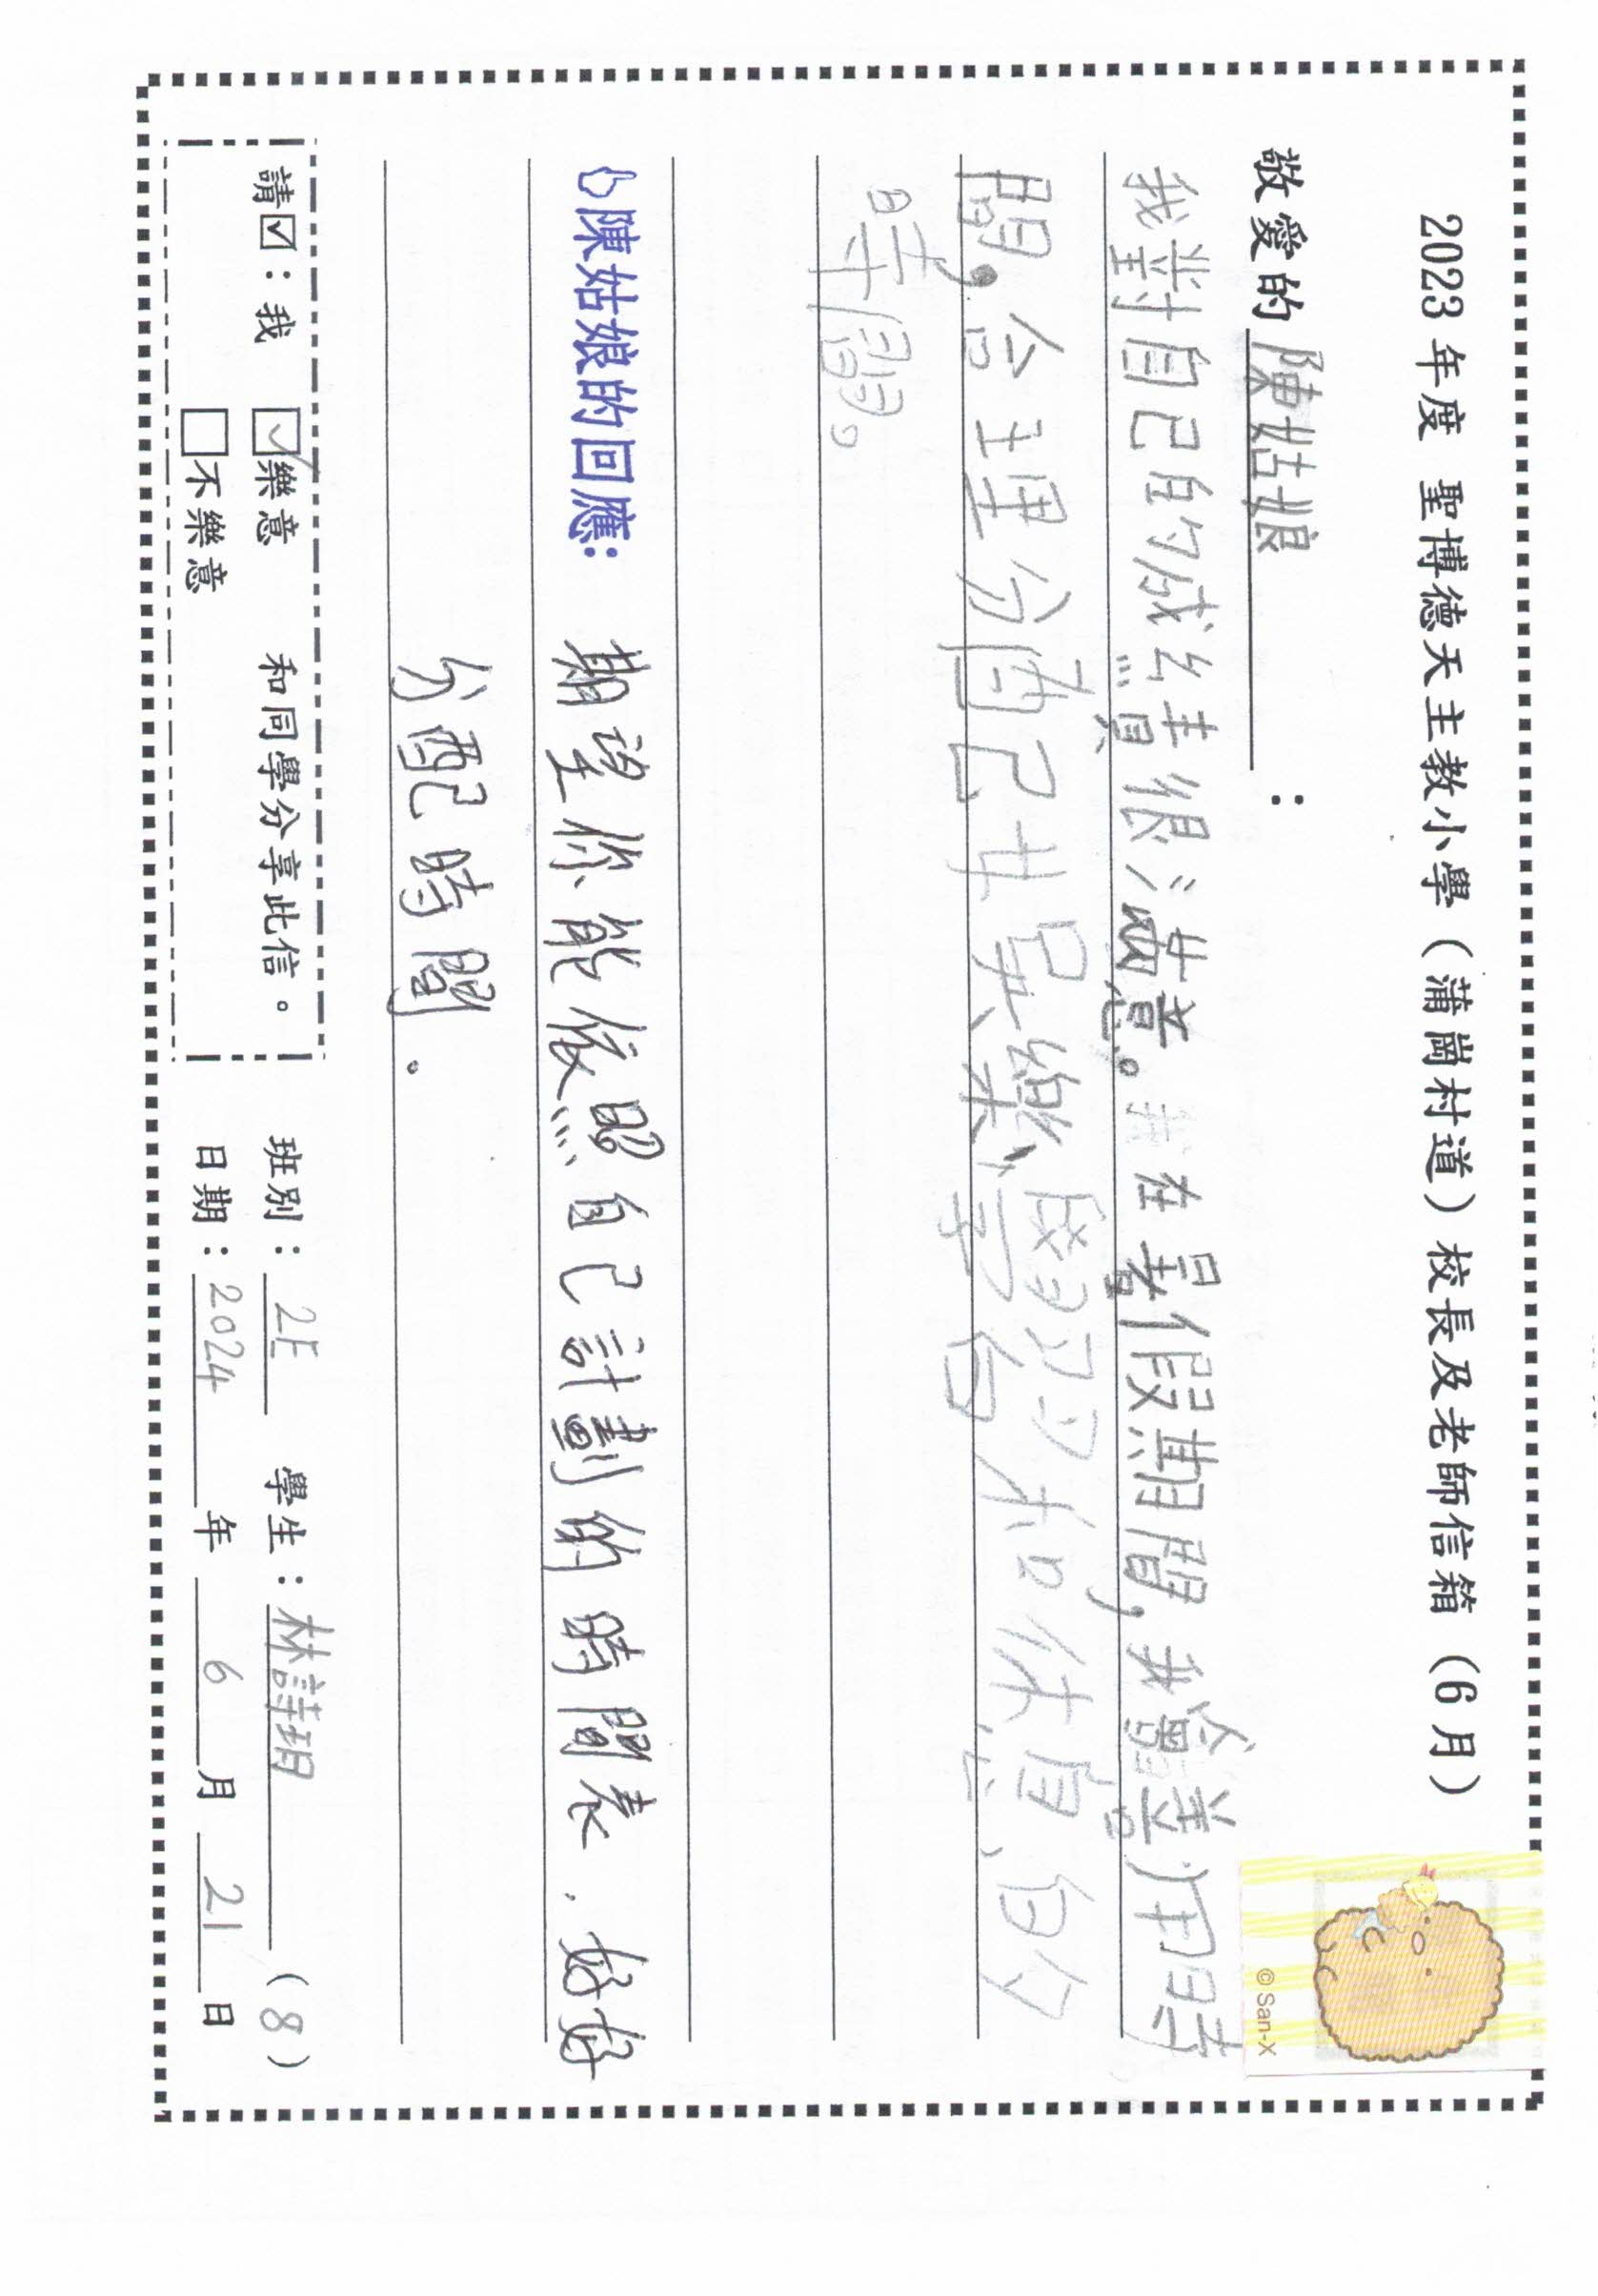 2023 年度 聖博德天主教小學（蒲崗村道）校長及老師信箱（6 月）
敬愛的 陳姑娘：
我對自己的成績很滿意。在暑假期間，我會善用時
間，合理分配娛樂、學習和休息的
時間。
陳姑娘的回應：期望你能依照自己計劃的時間表，好好
分配時間。
請☑：我 ☑樂意 和同學分享此信。
☐不樂意
班別：2E 學生：林詩玥（8）
日期：2024 年 6 月 21 日
© San-X